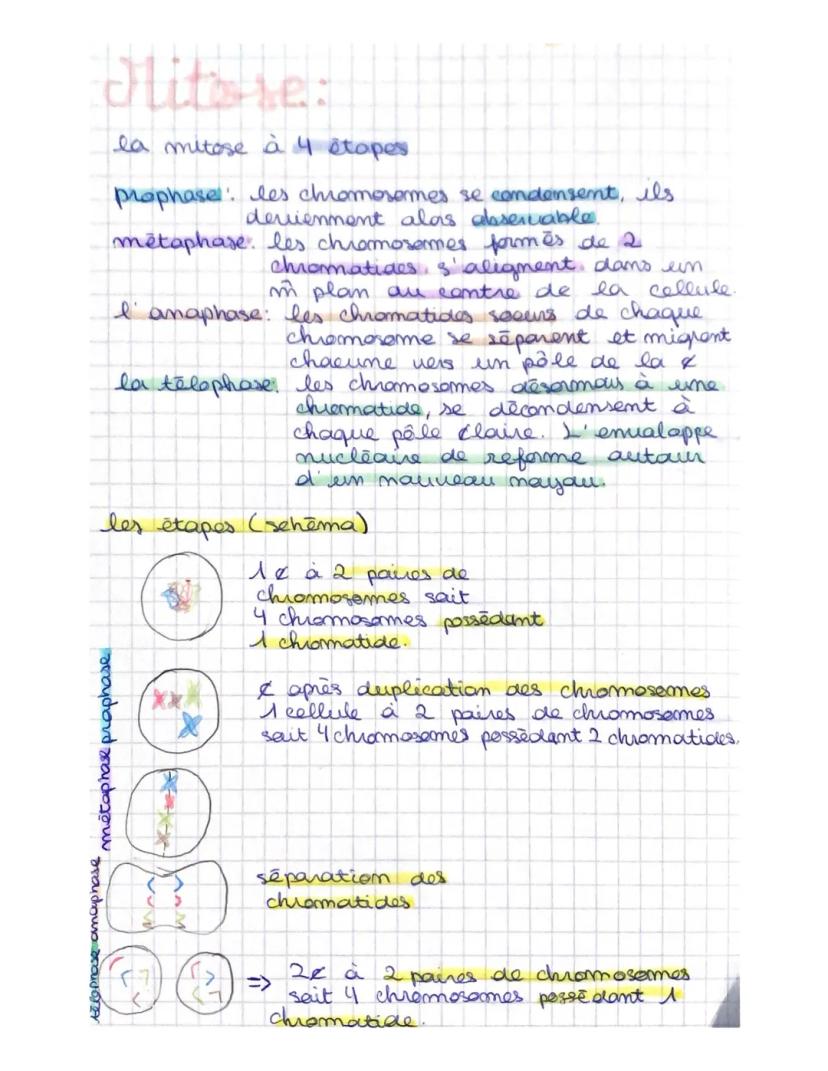 Mitose:
la mitose à 4 étapes
prophase: les chromosomes se condensent, ils
deviennent alors observable.
métaphase: les chromosomes formés de 2
chromatides, s'alignent dans un
m̂ plan au centre de la cellule.
l'anaphase: les chromatides soeurs de chaque
chromosome se séparent et migrent
chacune vers un pôle de la ¢
la télophase: les chromosomes désormais à une
chromatide, se décondensent à
chaque pôle ¢laire. L'envaloppe
nucléaire de reforme autour
d'un nouveau noyau.
les étapes (schéma)
1 ¢ à 2 paires de
chromosomes soit
4 chromosomes possédant
1 chromatide.
prophase
¢ après duplication des chromosomes
1 cellule à 2 paires de chromosomes
soit 4 chromosomes possédant 2 chromatides.
métaphase
anaphase
séparation des
chromatides
télophase
=> 2¢ à 2 paires de chromosomes
soit 4 chromosomes possédant 1
chromatide.